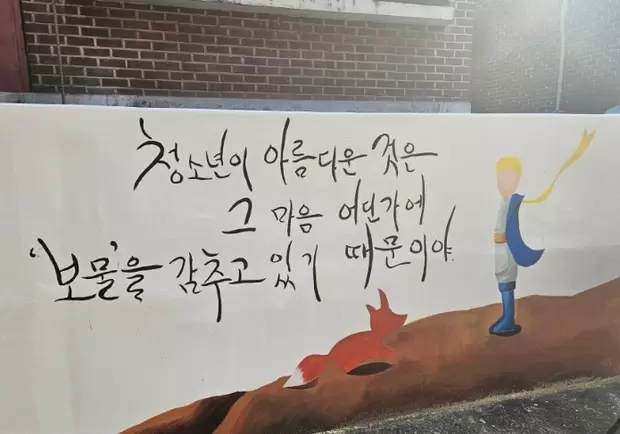 청소년이 아름다운 것은
그 마음 어딘가에
'보물'을 감추고 있기 때문이야.